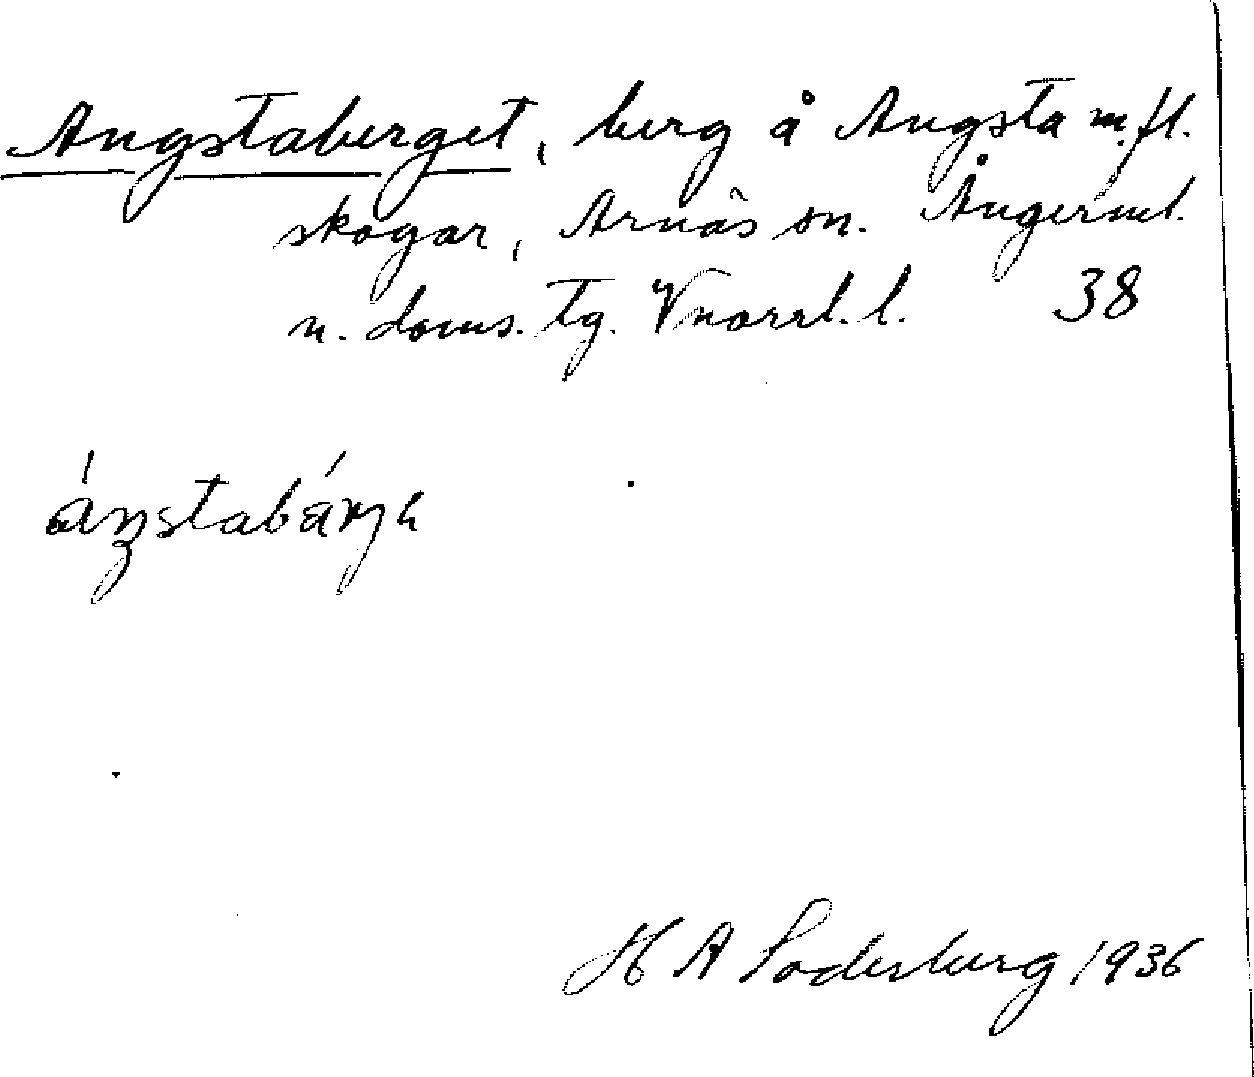 Angstaberget, berg å Angsta m.fl.
skogar, Arnäs sn. Ångerml.
n. doms. tg. Vnorrl. l. 38
H A Söderberg 1936